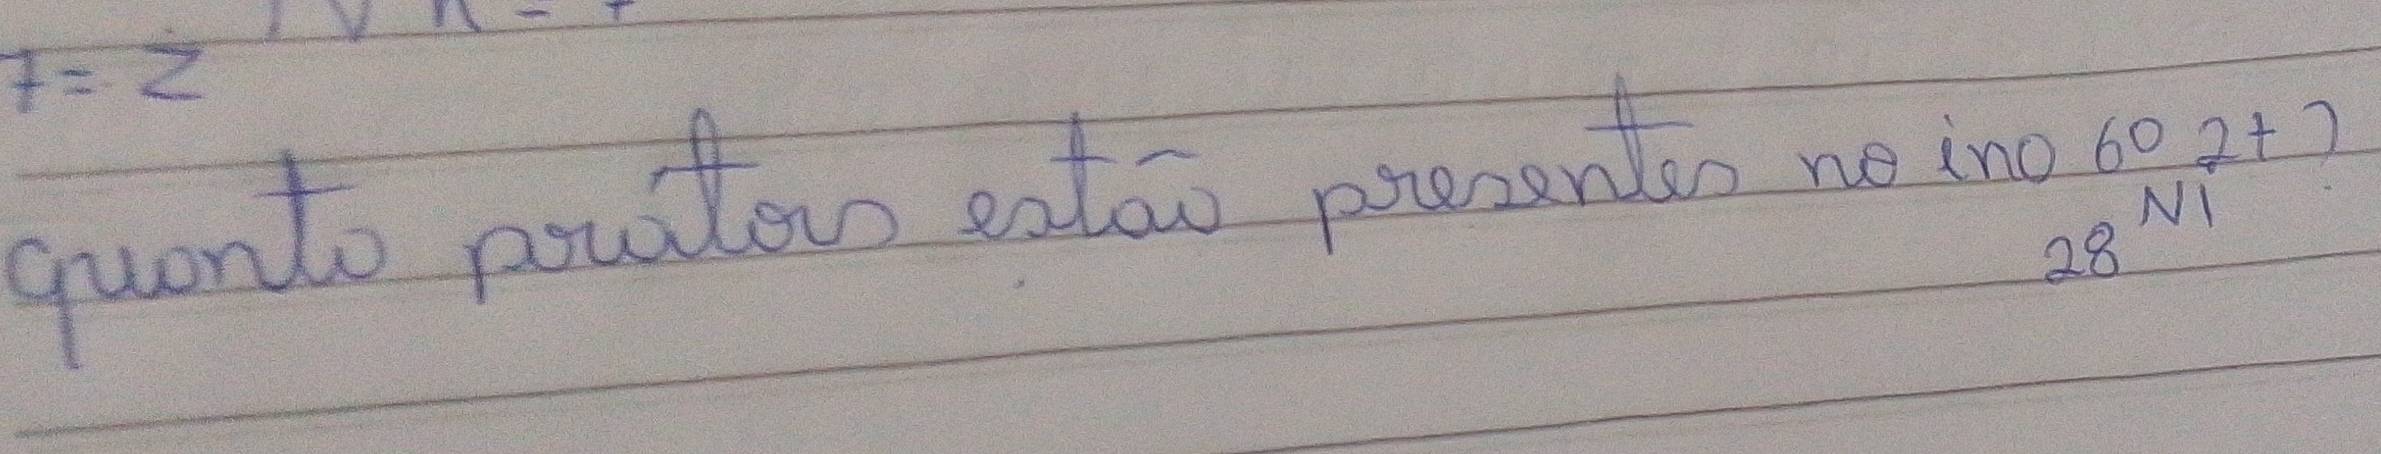 7 = Z
quanto prutons estão presentes no ino 60 2+ ?
28 Ni